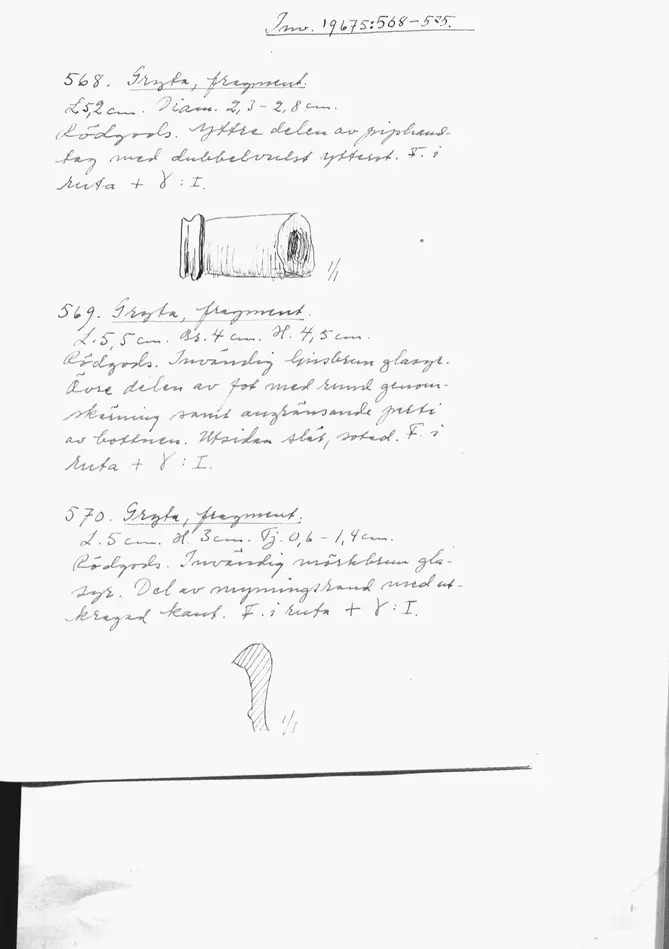 Inv. 19675:568-575.
568. Gryta, fragment.
L 5,2 cm. Diam. 2,3-2,8 cm.
Rödgods. Yttre delen av piphand-
tag med dubbelvulst ytterst. F. i
ruta + γ : I.
1/1
569. Gryta, fragment.
L. 5,5 cm. Br. 4 cm. H. 4,5 cm.
Rödgods. Invändig ljusbrun glasyr.
Övre delen av fot med rund genom-
skärning samt angränsande parti
av bottnen. Utsidan slät, sotad. F. i
ruta + γ : I.
570. Gryta, fragment.
L. 5 cm. H. 3 cm. Tj. 0,6-1,4 cm.
Rödgods. Invändig mörkbrun gla-
syr. Del av mynningsrand med ut-
kragad kant. F. i ruta + γ : I.
1/1